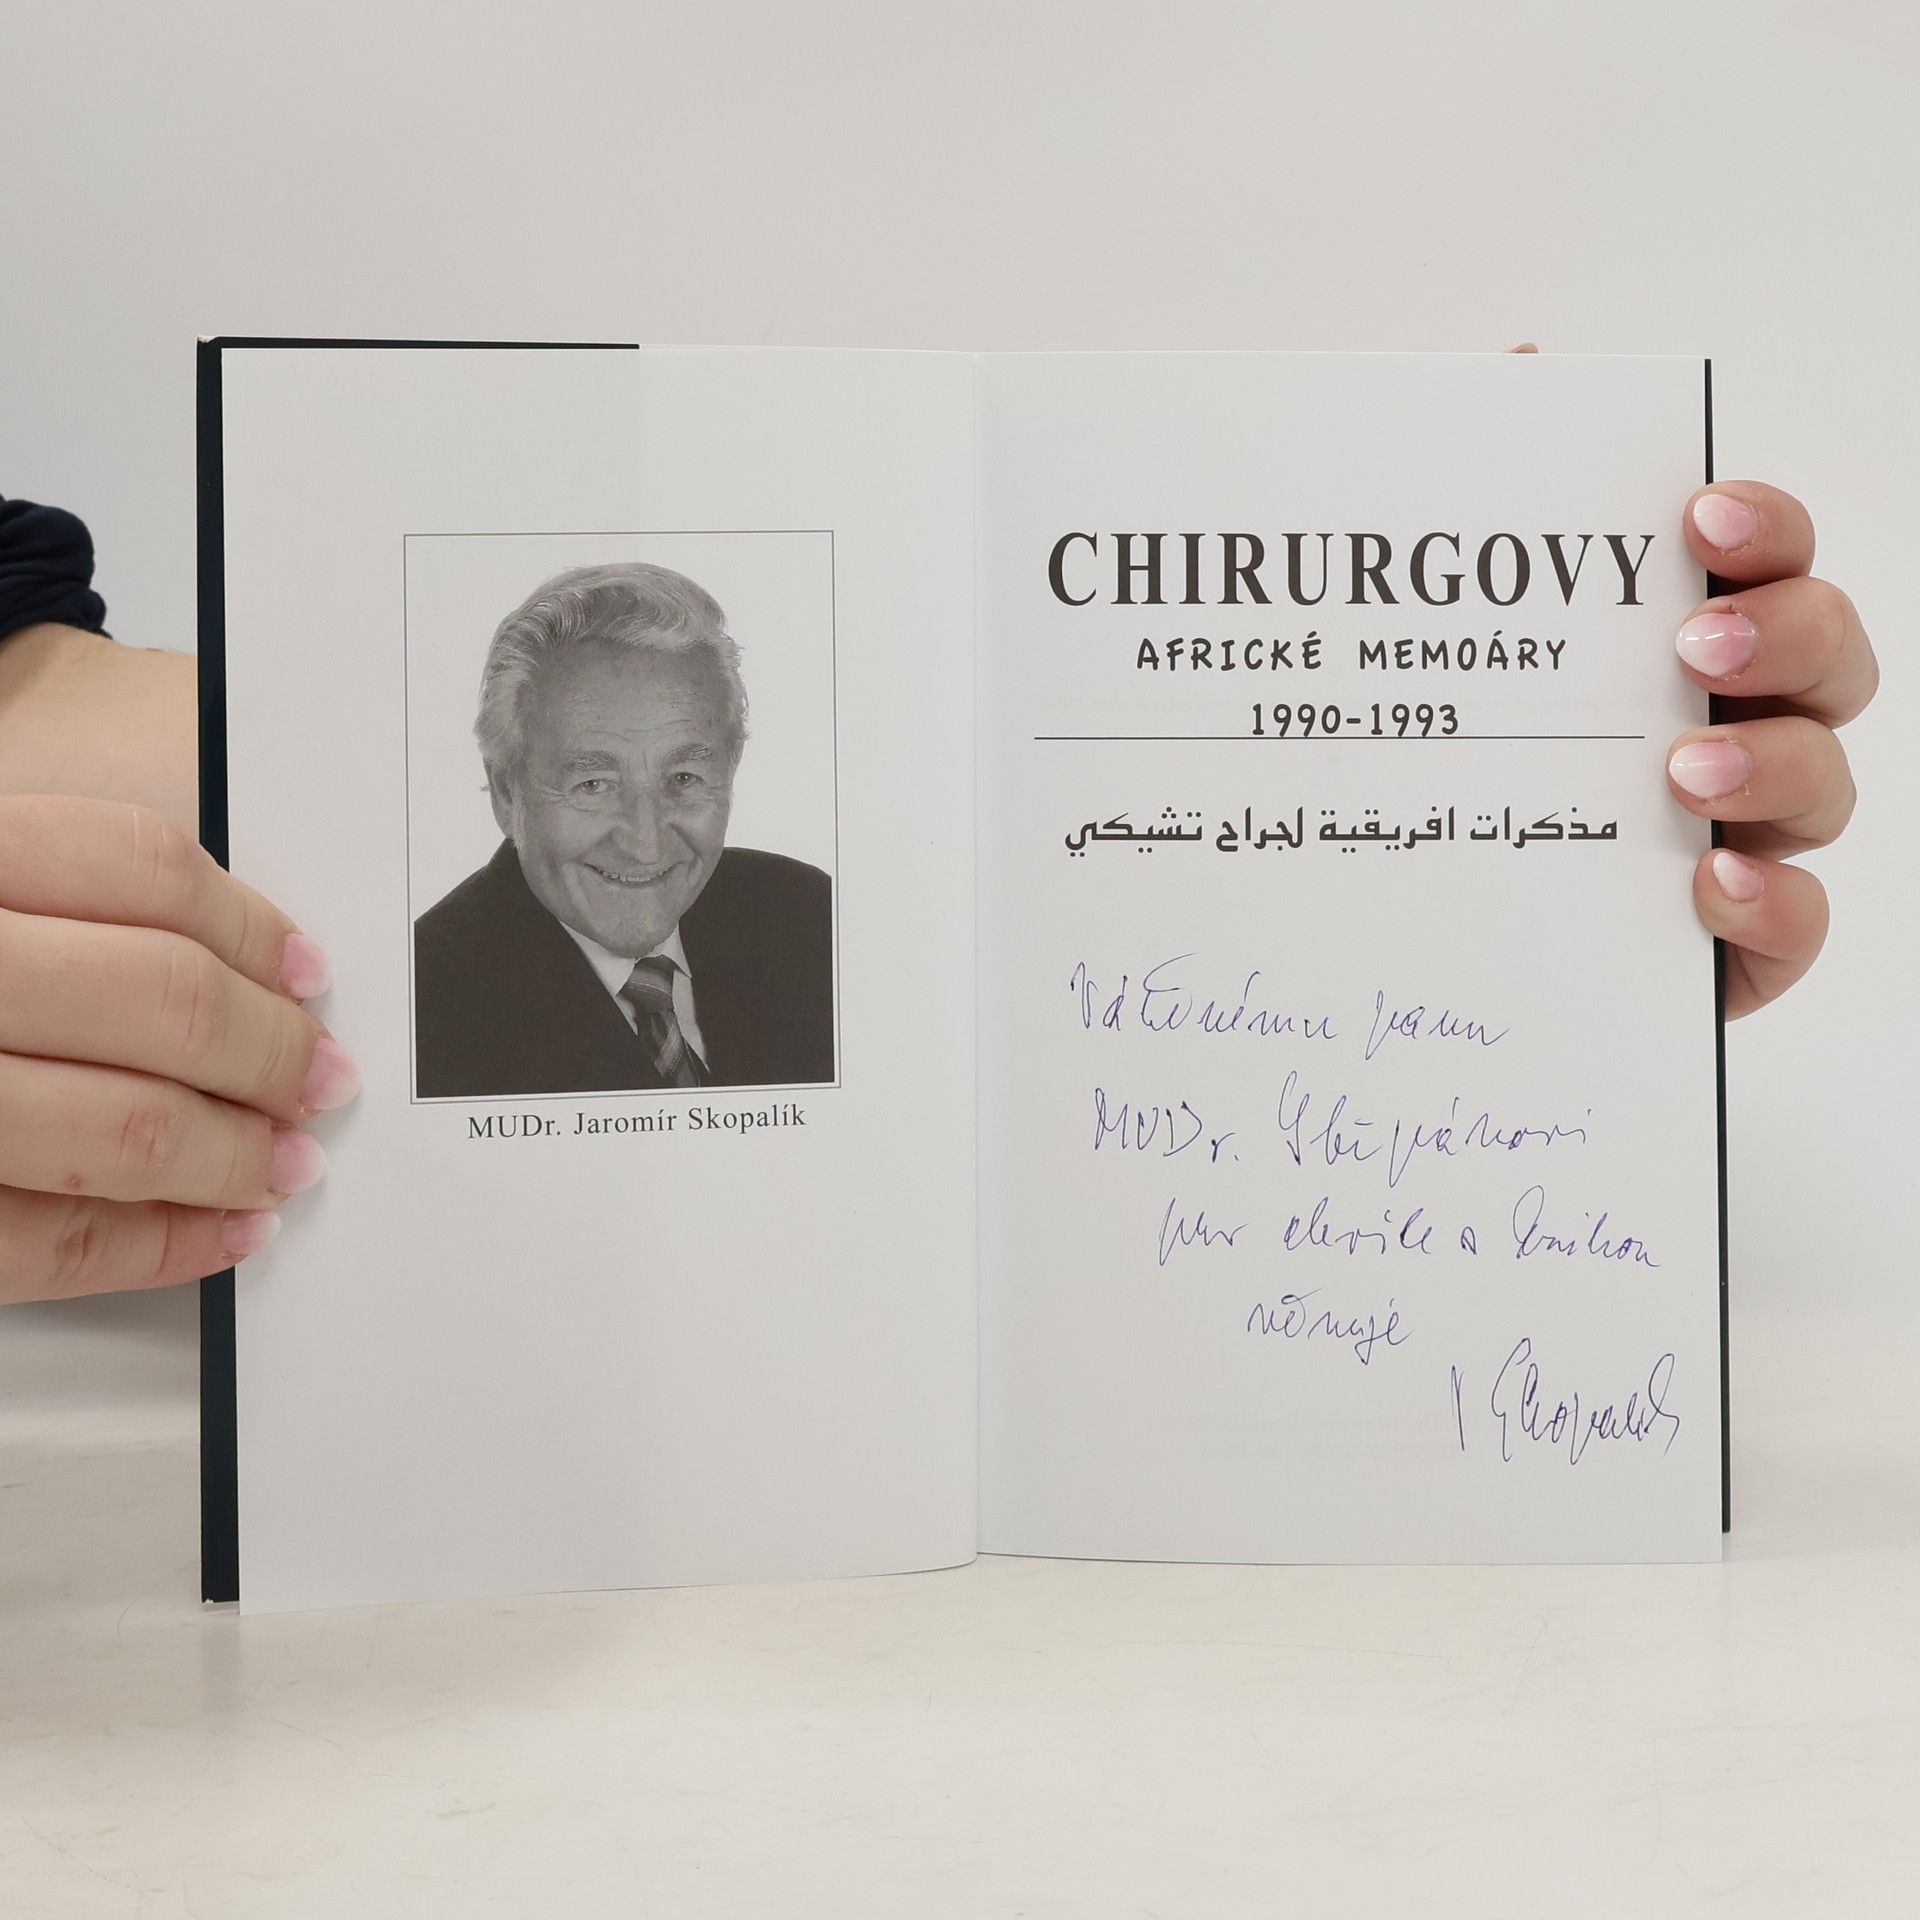 MUDr. Jaromír Skopalík
CHIRURGOVY
AFRICKÉ MEMOÁRY
1990-1993
مذكرات افريقية لجراح تشيكي
Váženému panu
MUDr. Štěpánovi
pro chvíle s knihou
věnuje
Skopalík